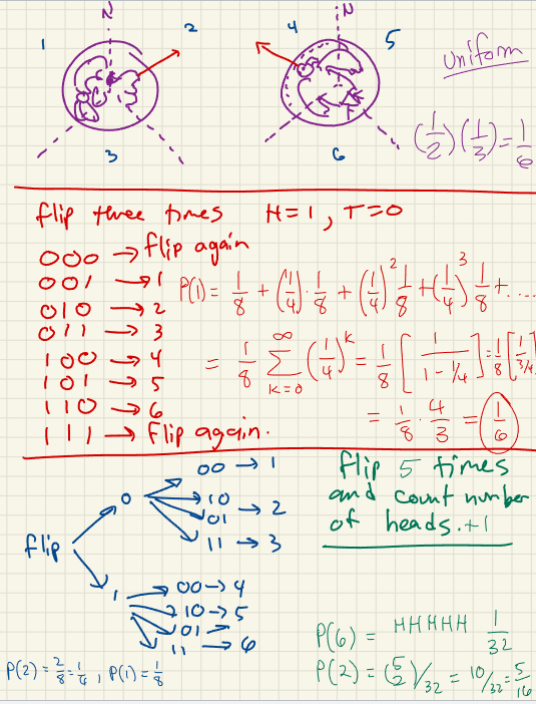 N
1
2
3
N
4
5
6
Uniform
(1/2)(1/3)=1/6
flip three times H=1, T=0
000 → flip again
001 → 1
010 → 2
011 → 3
100 → 4
101 → 5
110 → 6
111 → flip again.
P(1) = 1/8 + (1/4)·1/8 + (1/4)² 1/8 + (1/4)³ 1/8 + ....
= 1/8 ∑_{k=0}^{∞} (1/4)^k = 1/8 [1/(1-1/4)] = 1/8 [1/3/4]
= 1/8 · 4/3 = 1/6
flip
0
00 → 1
10
01 → 2
11 → 3
1
00 → 4
10 → 5
01 →
11 → 6
P(2) = 2/8 = 1/4, P(1) = 1/8
flip 5 times
and count number
of heads. +1
P(6) = HHHHH 1/32
P(2) = (5 2)/32 = 10/32 = 5/16